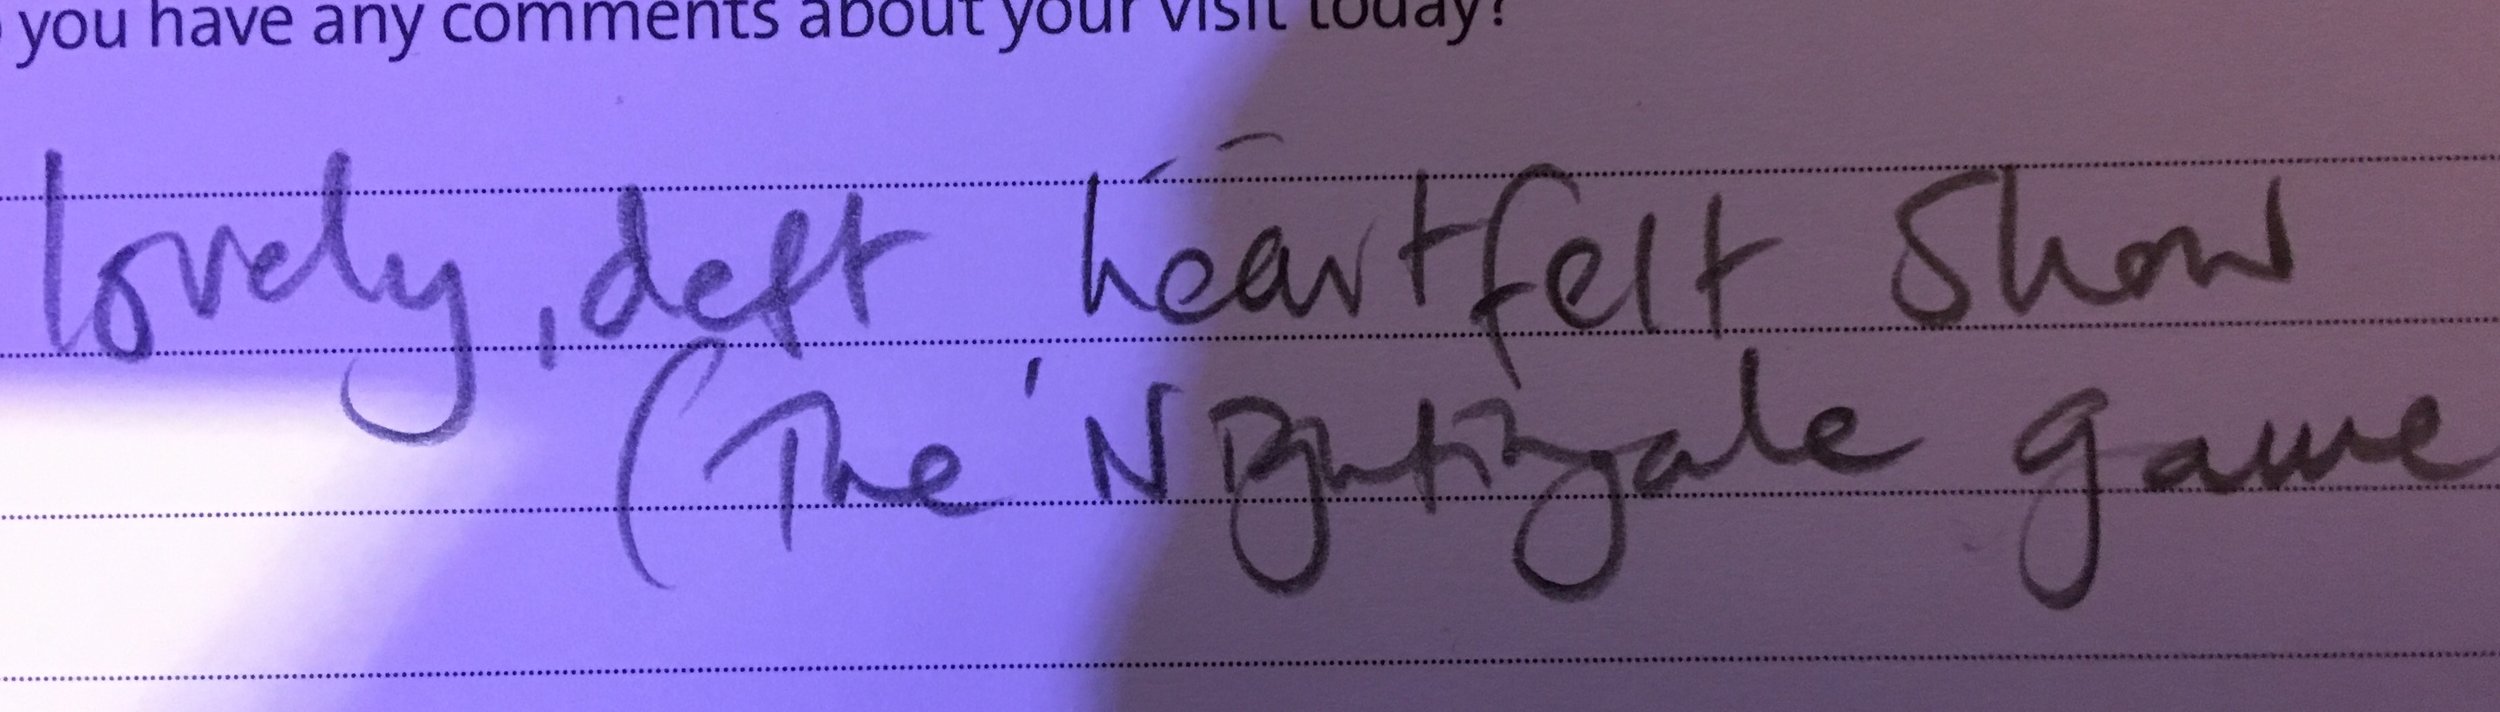 you have any comments about your visit today?
lovely, deft heartfelt show
(The Nightingale game